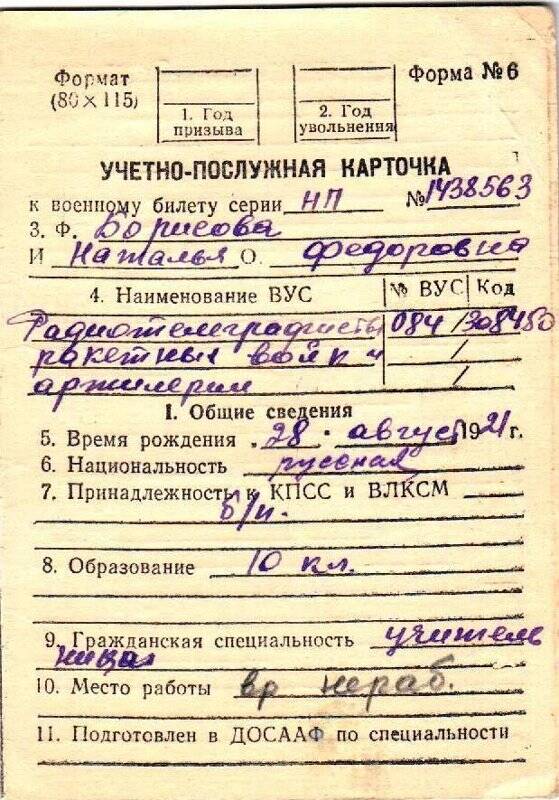 Формат
(80×115)
1. Год призыва
2. Год увольнения
Форма №6
УЧЕТНО-ПОСЛУЖНАЯ КАРТОЧКА
к военному билету серии НП №1438563
3. Ф. Борисова
И Наталья О. Федоровна
4. Наименование ВУС № ВУС Код
Радиотелеграфисты 084 308450
ракетных войск и
артилерии
I. Общие сведения
5. Время рождения 28 август 1921 г.
6. Национальность русская
7. Принадлежность к КПСС и ВЛКСМ
б/п.
8. Образование 10 кл.
9. Гражданская специальность учитель
10. Место работы вр нераб.
11. Подготовлен в ДОСААФ по специальности